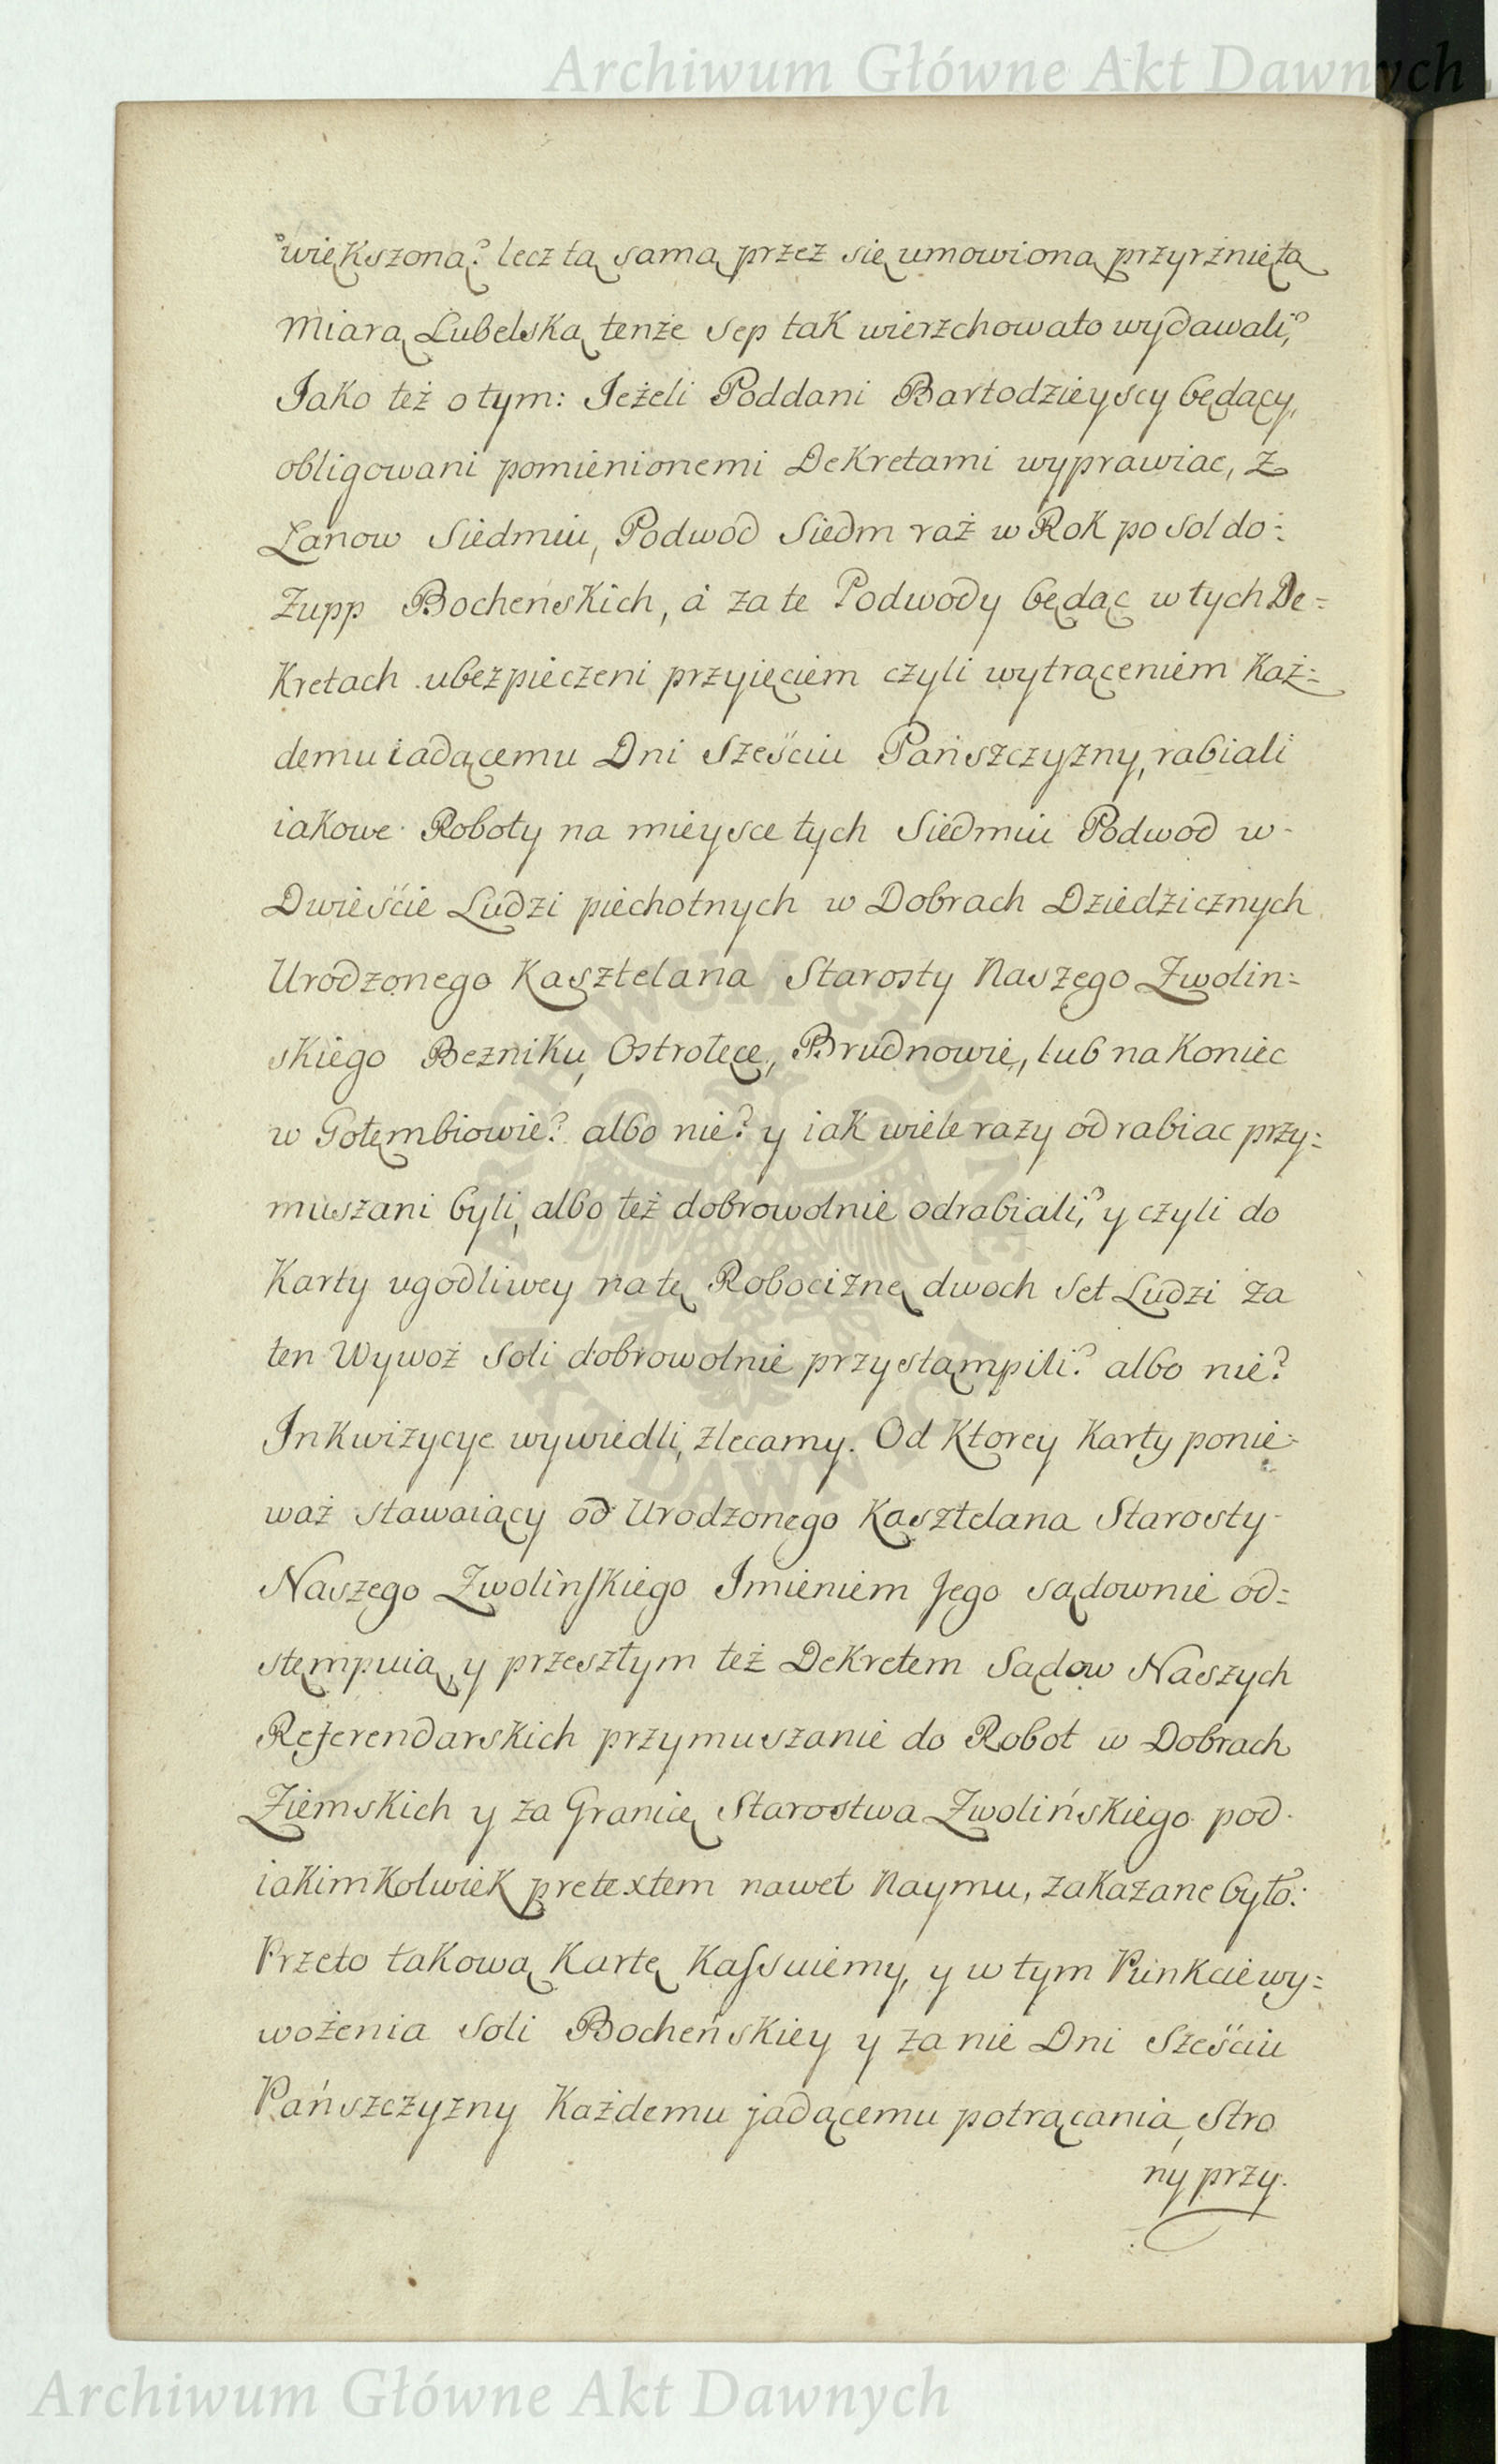 Archiwum Główne Akt Dawnych
większoną? lecz tą samą przez się umowioną przyrżniętą
Miarą Lubelską tenże Sep tak wierzchowato wydawali?
Jako też o tym: Jeżeli Poddani Bartodzieyscy będący,
obligowani pomienionemi Dekretami wyprawiac, z
Łanow Siedmiu, Podwod Siedm raż w Rok po Sol do:
Zupp Bocheńskich, á za te Podwody będąc w tych De=
kretach ubezpieczeni przyięciem czyli wytrąceniem Każ=
demu iadącemu Dni Sześciu Pańszczyzny, rabiali
iakowe Roboty na mieysce tych Siedmiu Podwod w-
Dwieście Ludzi piechotnych w Dobrach Dziedzicznych
Urodzonego Kasztelana Starosty Naszego Zwolin=
skiego Bezniku, Ostrołęce, Brudnowie, lub na koniec
w Gołembiowie? albo nie? y iak wiele razy odrabiac przy=
muszani byli, albo też dobrowolnie odrabiali? y czyli do
Karty ugodliwey na tę Robociznę dwoch Set Ludzi za
ten Wywoż Soli dobrowolnie przystąmpili? albo nie?
Inkwizycye wywiedli, zlecamy. Od Ktorey Karty ponie=
waż stawaiący od Urodzonego Kasztelana Starosty-
Naszego Zwolinskiego Imieniem Jego sądownie od=
stęmpuią, y przeszłym też Dekretem Sądow Naszych
Referendarskich przymuszanie do Robot w Dobrach
Ziemskich y za Granicę Starostwa Zwolińskiego pod-
iakimkolwiek pretextem nawet Naymu, zakazane było:
Przeto takową Kartę Kassuiemy, y w tym Punkcie wy=
wożenia Soli Bocheńskiey y za nie Dni Sześciu
Pańszczyzny Każdemu jadącemu potrącania, Stro
ny przy.
Archiwum Główne Akt Dawnych